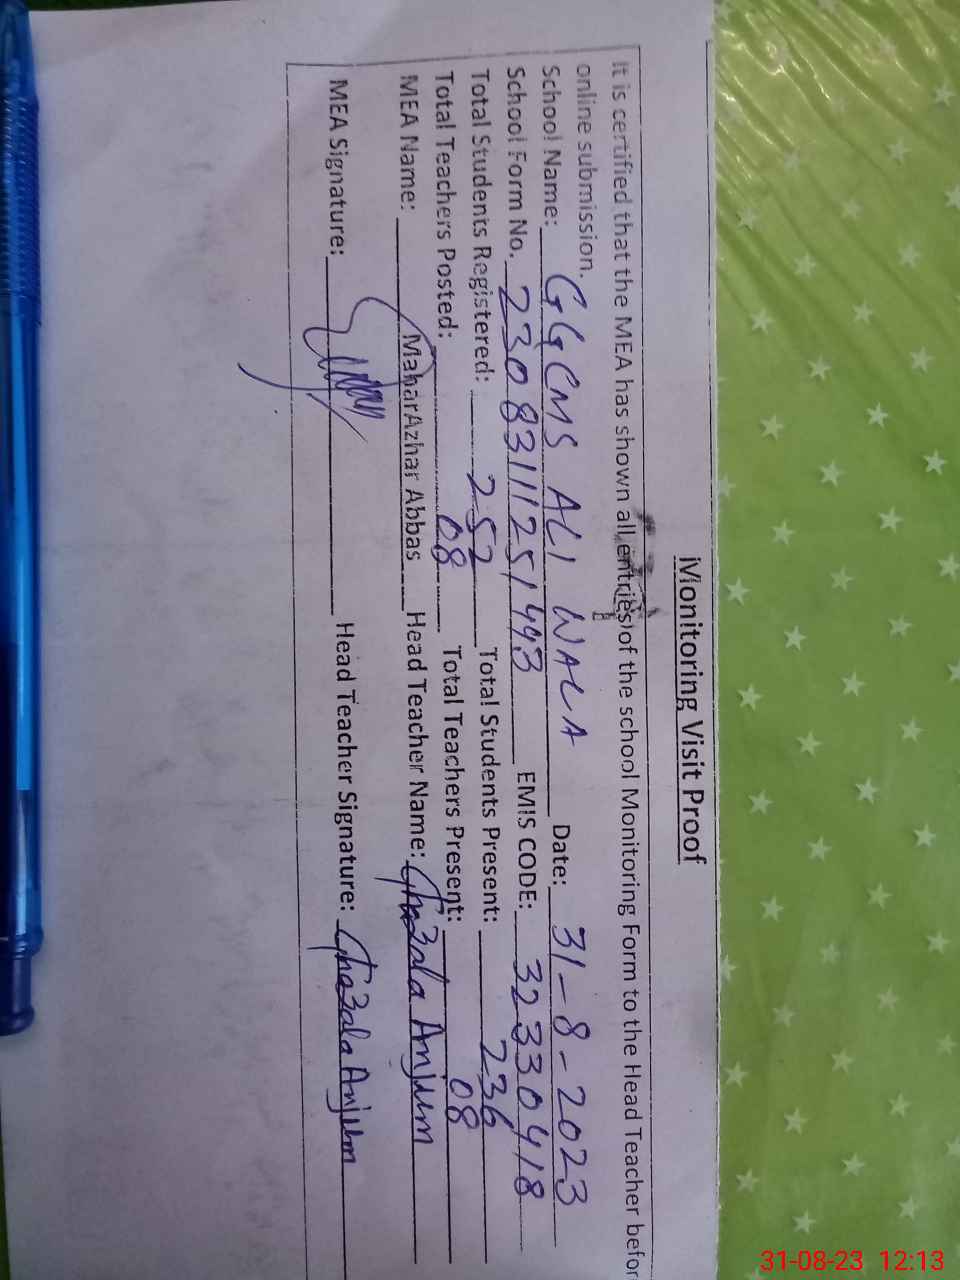 Monitoring Visit Proof
It is certified that the MEA has shown all entries of the school Monitoring Form to the Head Teacher befor
online submission.
School Name: GGCMS ALI WALA Date: 31-8-2023
School Form No. 23083111251493 EMIS CODE: 32330418
Total Students Registered: 252 Total Students Present: 236
Total Teachers Posted: 08 Total Teachers Present: 08
MEA Name: Mahar Azhar Abbas Head Teacher Name: Ghazala Anjum
MEA Signature: Head Teacher Signature: Ghazala Anjum
31-08-23 12:13